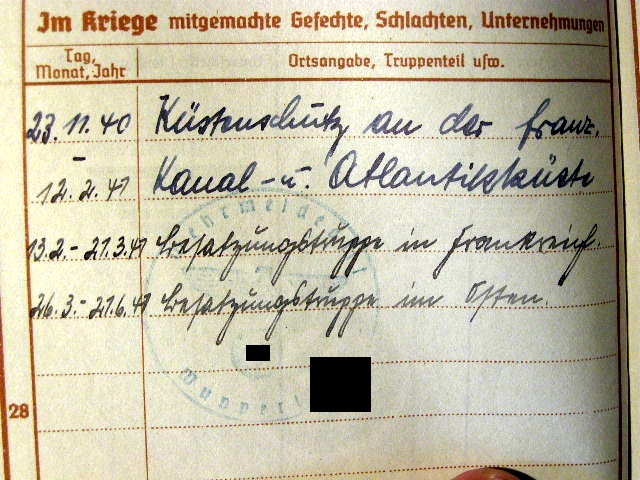 Im Kriege mitgemachte Gefechte, Schlachten, Unternehmungen
Tag, Monat, Jahr
Ortsangabe, Truppenteil usw.
23. 11. 40 Küstenschutz an der franz.
- 12. 2. 41 Kanal- u. Atlantikküste
13. 2. - 21. 3. 41 Besatzungstruppe in Frankreich.
26. 3. - 21. 6. 41 Besatzungstruppe im Osten.
28